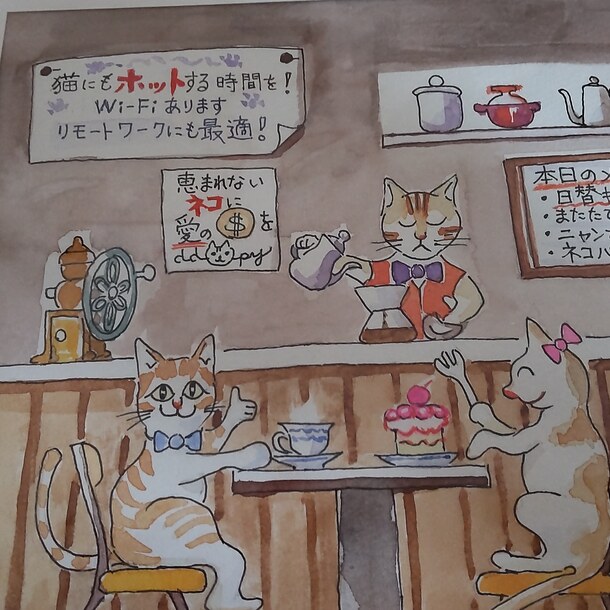 猫にもホットする時間を!
Wi-Fiあります
リモートワークにも最適!
恵まれない
ネコに
愛の$を
本日の
・日替
・またた
・ニャン
・ネコハ